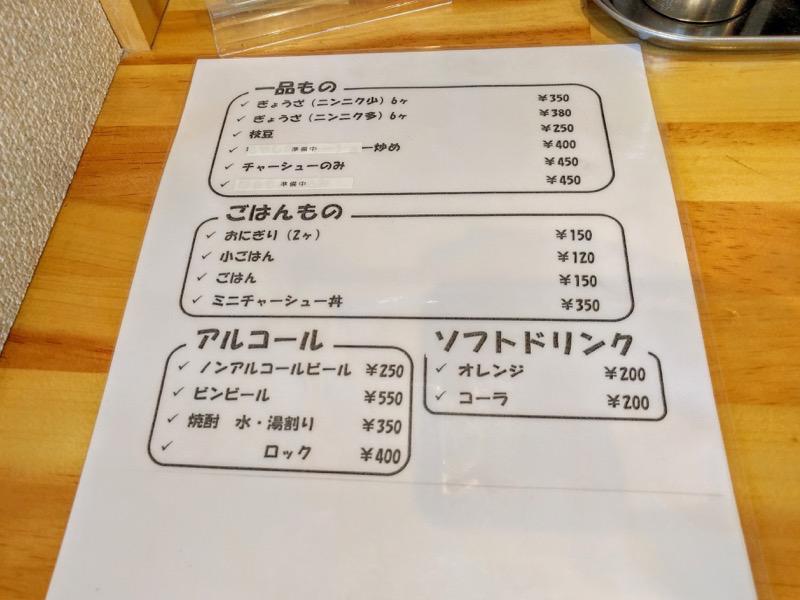 一品もの
✓ ぎょうざ（ニンニク少）6ヶ ¥350
✓ ぎょうざ（ニンニク多）6ヶ ¥380
✓ 枝豆 ¥250
✓ 準備中 ー炒め ¥400
✓ チャーシューのみ ¥450
✓ 準備中 ¥450
ごはんもの
✓ おにぎり（2ヶ） ¥150
✓ 小ごはん ¥120
✓ ごはん ¥150
✓ ミニチャーシュー丼 ¥350
アルコール
✓ ノンアルコールビール ¥250
✓ ビンビール ¥550
✓ 焼酎 水・湯割り ¥350
✓ ロック ¥400
ソフトドリンク
✓ オレンジ ¥200
✓ コーラ ¥200